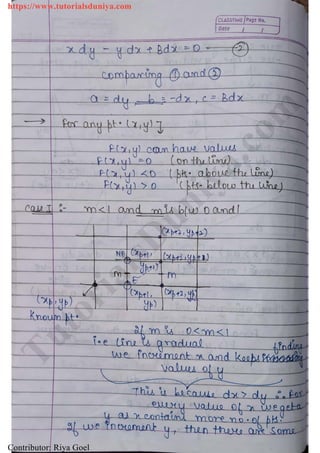 https://www.tutorialsduniya.com
CLASSTIME Page No.
Date / /
x dy - y dx + Bdx = 0 - ②
Comparing ① and ②
a = dy, b = -dx, c = Bdx
→ For any pt. (x,y) ↴
F(x,y) can have values
F(x,y) = 0 (on the line)
F(x,y) < 0 (pts. above the line)
F(x,y) > 0 (pts. below the line)
Case I :- m<1 and m is b/w 0 and 1
(xp+2, yp+2)
NE (xp+1, yp+1)
(xp+2, yp+1)
m m
E
(xp+1, yp)
(xp+2, yp)
(xp, yp)
Known pt.
If m is 0<m<1
i.e line is gradual
we increment x and keeps finding
values of y
This is because dx > dy ∴ For
every value of x we get a
y as x contains more no. of pts.
If we increment y, then there are some
TutorialsDuniya.com
Contributor: Riya Goel